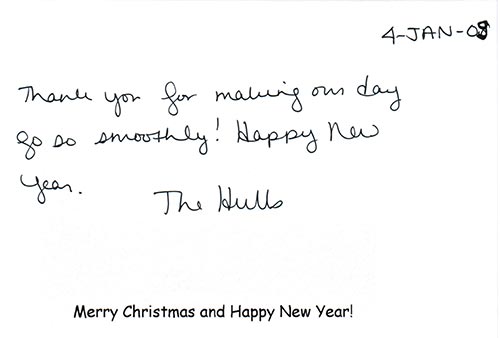 4-JAN-08
Thank you for making our day
go so smoothly! Happy New
Year.
The Hulls
Merry Christmas and Happy New Year!